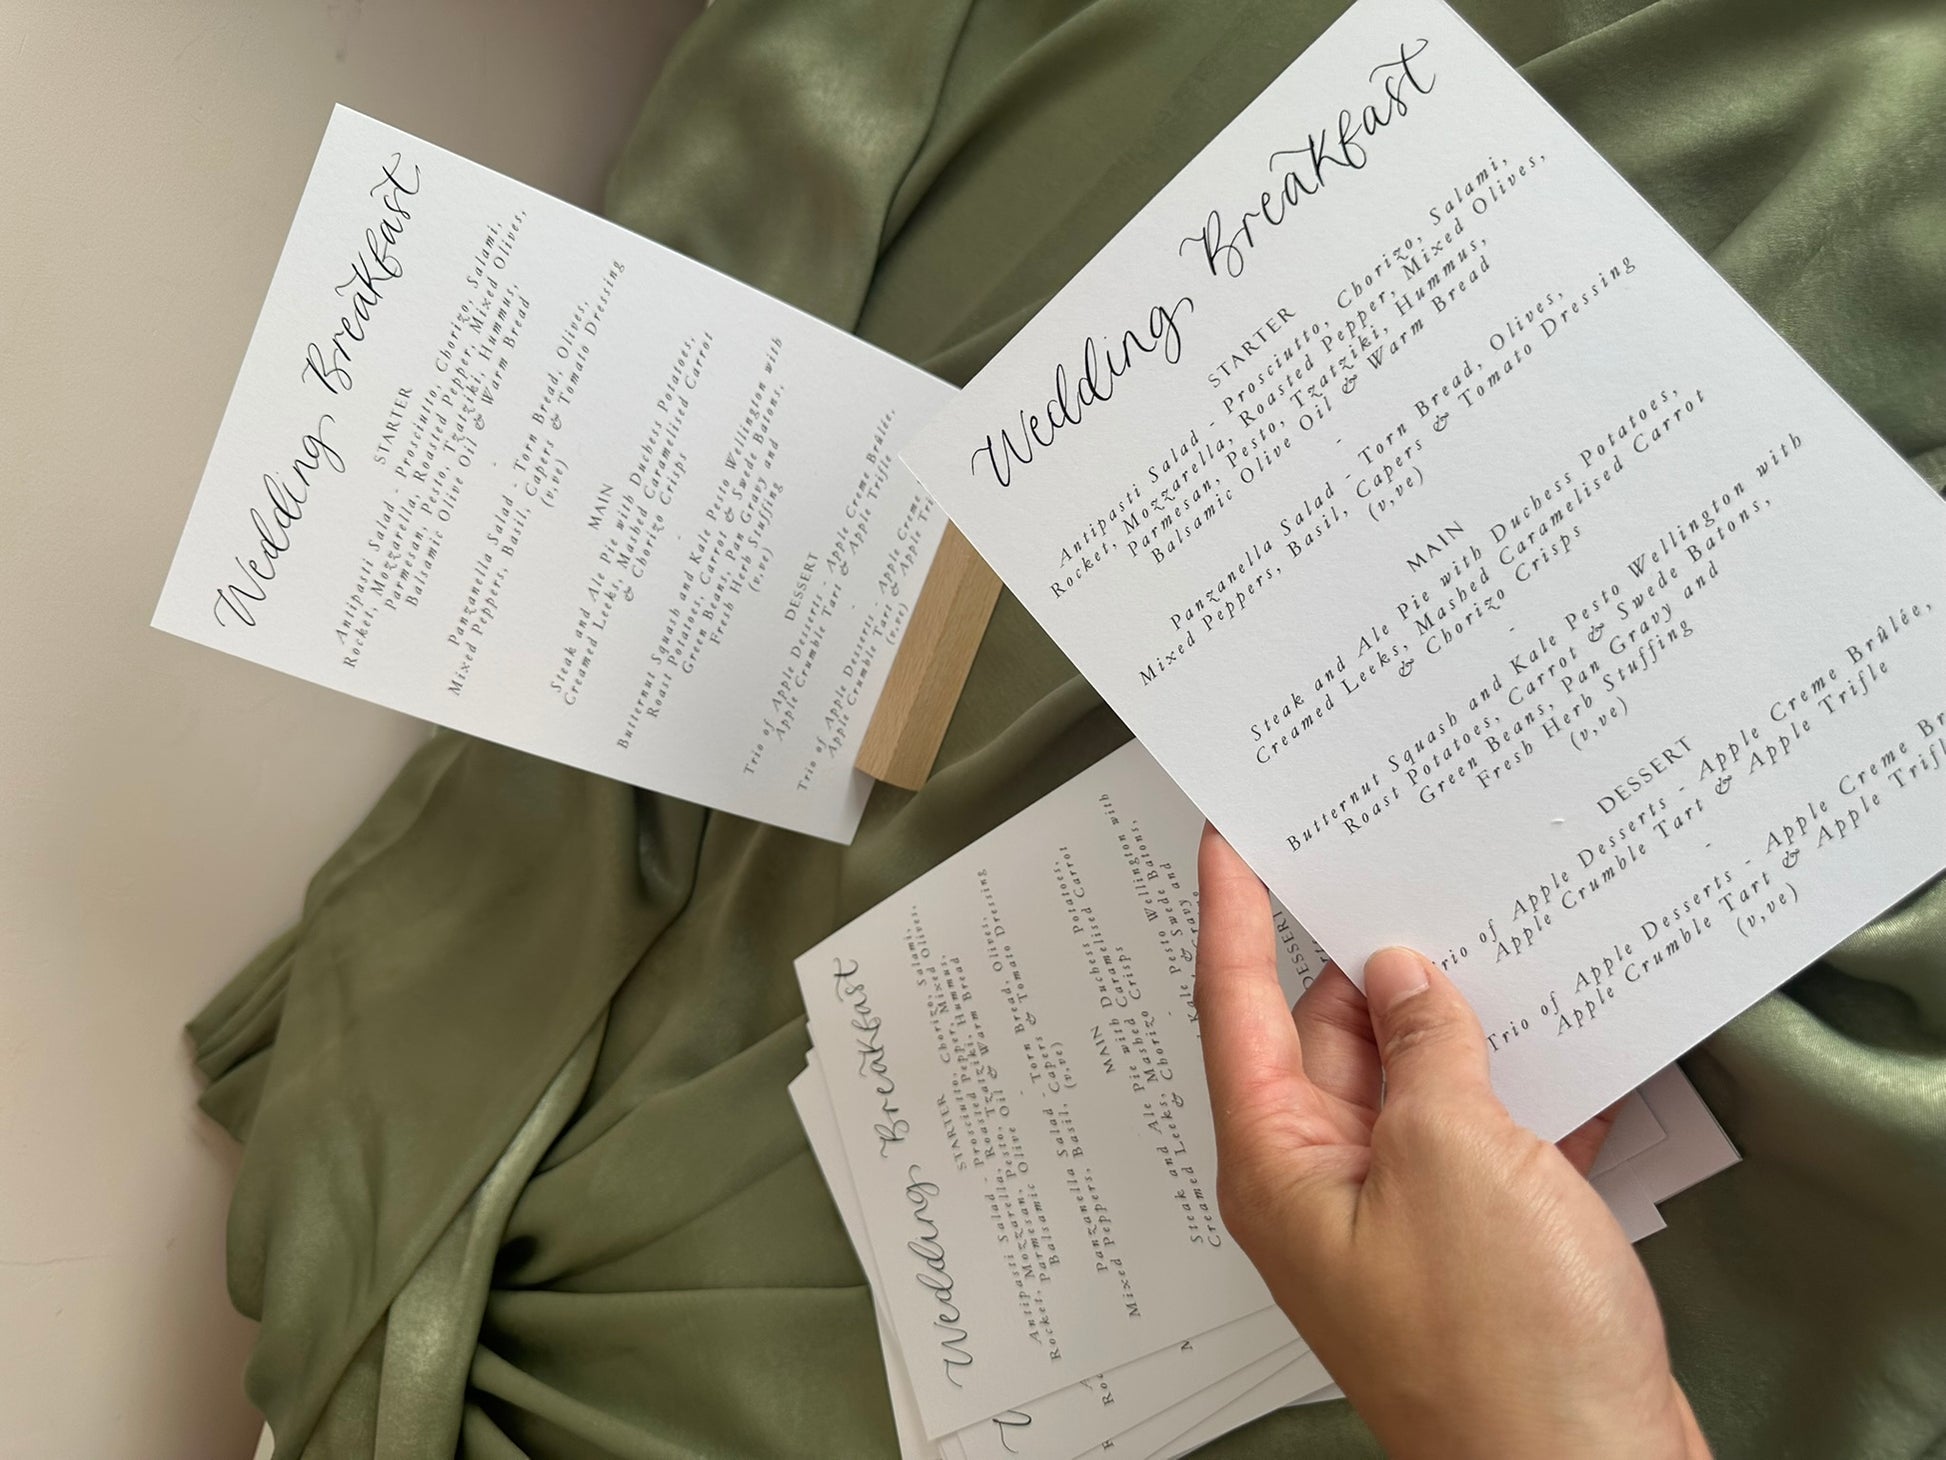 Wedding Breakfast
STARTER
Antipasti Salad - Prosciutto, Chorizo, Salami,
Rocket, Mozzarella, Roasted Pepper, Mixed Olives,
Parmesan, Pesto, Tzatziki, Hummus,
Balsamic Olive Oil & Warm Bread
-
Panzanella Salad - Torn Bread, Olives,
Mixed Peppers, Basil, Capers & Tomato Dressing
(v,ve)
MAIN
Steak and Ale Pie with Duchess Potatoes,
Creamed Leeks, Mashed Caramelised Carrot
& Chorizo Crisps
-
Butternut Squash and Kale Pesto Wellington with
Roast Potatoes, Carrot & Swede Batons,
Green Beans, Pan Gravy and
Fresh Herb Stuffing
(v,ve)
DESSERT
Trio of Apple Desserts - Apple Creme Brûlée,
Apple Crumble Tart & Apple Trifle
-
Trio of Apple Desserts - Apple Creme
Apple Crumble Tart & Apple Tri
(v,ve)
Wedding Breakfast
STARTER
Antipasti Salad - Prosciutto, Chorizo, Salami,
Rocket, Mozzarella, Roasted Pepper, Mixed Olives,
Parmesan, Pesto, Tzatziki, Hummus,
Balsamic Olive Oil & Warm Bread
-
Panzanella Salad - Torn Bread, Olives,
Mixed Peppers, Basil, Capers & Tomato Dressing
(v,ve)
MAIN
Steak and Ale Pie with Duchess Potatoes,
Creamed Leeks, Mashed Caramelised Carrot
& Chorizo Crisps
-
Butternut Squash and Kale Pesto Wellington with
Roast Potatoes, Carrot & Swede Batons,
Green Beans, Pan Gravy and
Fresh Herb Stuffing
(v,ve)
DESSERT
Trio of Apple Desserts - Apple Creme Brûlée,
Apple Crumble Tart & Apple Trifle
-
Trio of Apple Desserts - Apple Creme Br
Apple Crumble Tart & Apple Trifl
(v,ve)
Wedding Breakfast
STARTER
Antipasti Salad - Prosciutto, Chorizo, Salami,
Rocket, Mozzarella, Roasted Pepper, Mixed Olives,
Parmesan, Pesto, Tzatziki, Hummus,
Balsamic Olive Oil & Warm Bread
-
Panzanella Salad - Torn Bread, Olives,
Mixed Peppers, Basil, Capers & Tomato Dressing
(v,ve)
MAIN
Steak and Ale Pie with Duchess Potatoes,
Creamed Leeks, Mashed Caramelised Carrot
& Chorizo Crisps
-
Kale Pesto Wellington with
& Swede Batons,
Gravy and
DESSERT